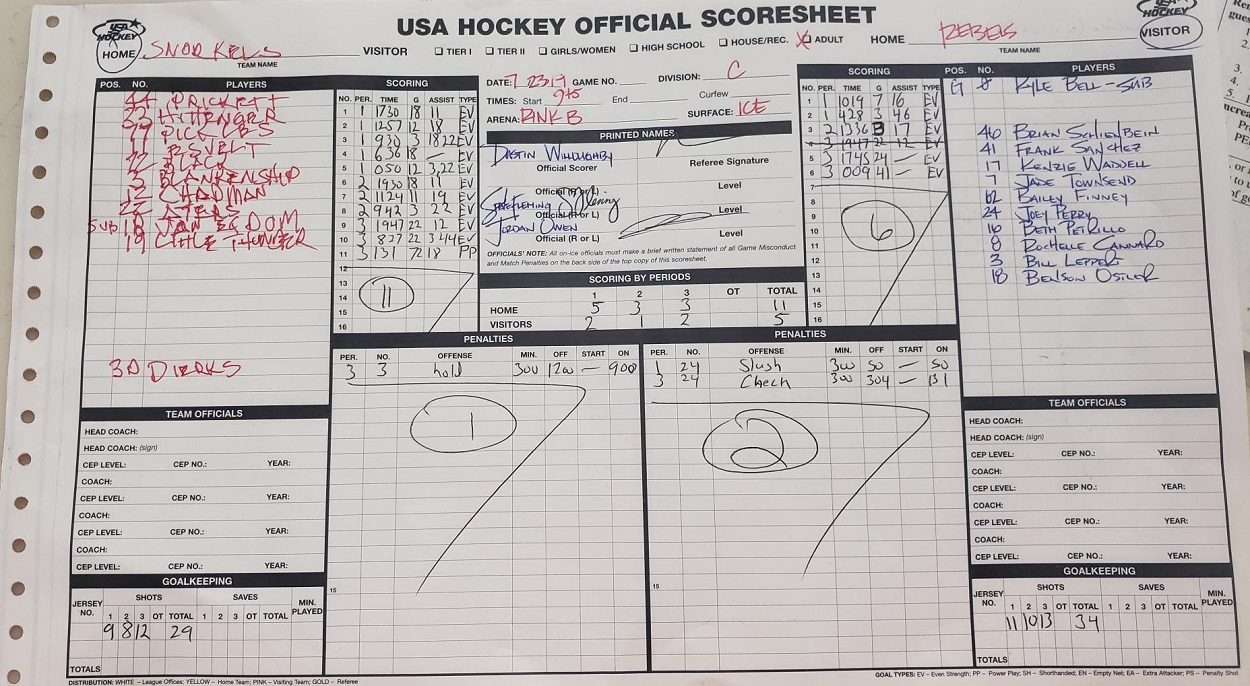 USA HOCKEY OFFICIAL SCORESHEET
USA HOCKEY
HOCKEY
HOME SNORKELS VISITOR
TEAM NAME
☐ TIER I ☐ TIER II ☐ GIRLS/WOMEN ☐ HIGH SCHOOL ☐ HOUSE/REC. X ADULT
HOME REBELS VISITOR
TEAM NAME
POS. NO. PLAYERS
44 PRICKETT
33
77 PICKLES
11
22 BLACK
3 BLANKENSHIP
12 CHAPMAN
22
SUB 18
19 LITTLE THUNDER
30 DIERKS
SCORING
NO. PER. TIME G ASSIST TYPE
1 1 1730 18 11 EV
2 1 1257 12 18 EV
3 1 930 3 1822 EV
4 1 636 18 — EV
5 1 050 12 3,22 EV
6 2 1930 18 11 EV
7 2 1124 11 19 EV
8 2 942 3 22 EV
9 3 1947 22 12 EV
10 3 827 22 344 EV
11 3 131 22 18 PP
12
13
14
15
16
11
DATE: 7 23 19 GAME NO. DIVISION: C
TIMES: Start 945 End Curfew
ARENA: RINK B SURFACE: ICE
PRINTED NAMES
DUSTIN WILLOUGHBY
Official Scorer
Referee Signature
Official (R or L) Level
Steve Fleming
Official (R or L) Level
JORDAN OWEN
Official (R or L) Level
OFFICIALS' NOTE: All on-ice officials must make a brief written statement of all Game Misconduct
and Match Penalties on the back side of the top copy of this scoresheet.
SCORING BY PERIODS
1 2 3 OT TOTAL
HOME 5 3 3 11
VISITORS 2 1 2 5
SCORING
NO. PER. TIME G ASSIST TYPE
1 1 1019 7 16 EV
2 1 428 3 46 EV
3 2 1336 3 17 EV
4 3 1947 22 12 EV
5 3 1745 24 — EV
6 3 009 41 — EV
7
8
9
10
11
12
13
14
15
16
6
POS. NO. PLAYERS
G 8 KYLE BELL-SUB
46 BRIAN SCHIENBEIN
41 FRANK SANCHEZ
17 KENZIE WADDELL
7 JADE TOWNSEND
62 BAILEY FINNEY
24 JOEY PERRY
16 BETH PETRILLO
8 ROCHELLE CANNARD
3 BILL LEPPERT
18 BENSON OSILER
PENALTIES
PER. NO. OFFENSE MIN. OFF START ON
3 3 hold 300 1200 — 900
1
15
PENALTIES
PER. NO. OFFENSE MIN. OFF START ON
1 24 Slash 300 50 — 50
3 24 Check 300 304 — 131
2
15
TEAM OFFICIALS
HEAD COACH:
HEAD COACH: (sign)
CEP LEVEL: CEP NO.: YEAR:
COACH:
CEP LEVEL: CEP NO.: YEAR:
COACH:
CEP LEVEL: CEP NO.: YEAR:
COACH:
CEP LEVEL: CEP NO.: YEAR:
GOALKEEPING
JERSEY NO. SHOTS SAVES MIN. PLAYED
1 2 3 OT TOTAL 1 2 3 OT TOTAL
9 8 12 29
TOTALS
TEAM OFFICIALS
HEAD COACH:
HEAD COACH: (sign)
CEP LEVEL: CEP NO.: YEAR:
COACH:
CEP LEVEL: CEP NO.: YEAR:
COACH:
CEP LEVEL: CEP NO.: YEAR:
COACH:
CEP LEVEL: CEP NO.: YEAR:
GOALKEEPING
JERSEY NO. SHOTS SAVES MIN. PLAYED
1 2 3 OT TOTAL 1 2 3 OT TOTAL
11 10 13 34
TOTALS
DISTRIBUTION: WHITE – League Offices; YELLOW – Home Team; PINK – Visiting Team; GOLD – Referee
GOAL TYPES: EV – Even Strength; PP – Power Play; SH – Shorthanded; EN – Empty Net; EA – Extra Attacker; PS – Penalty Shot